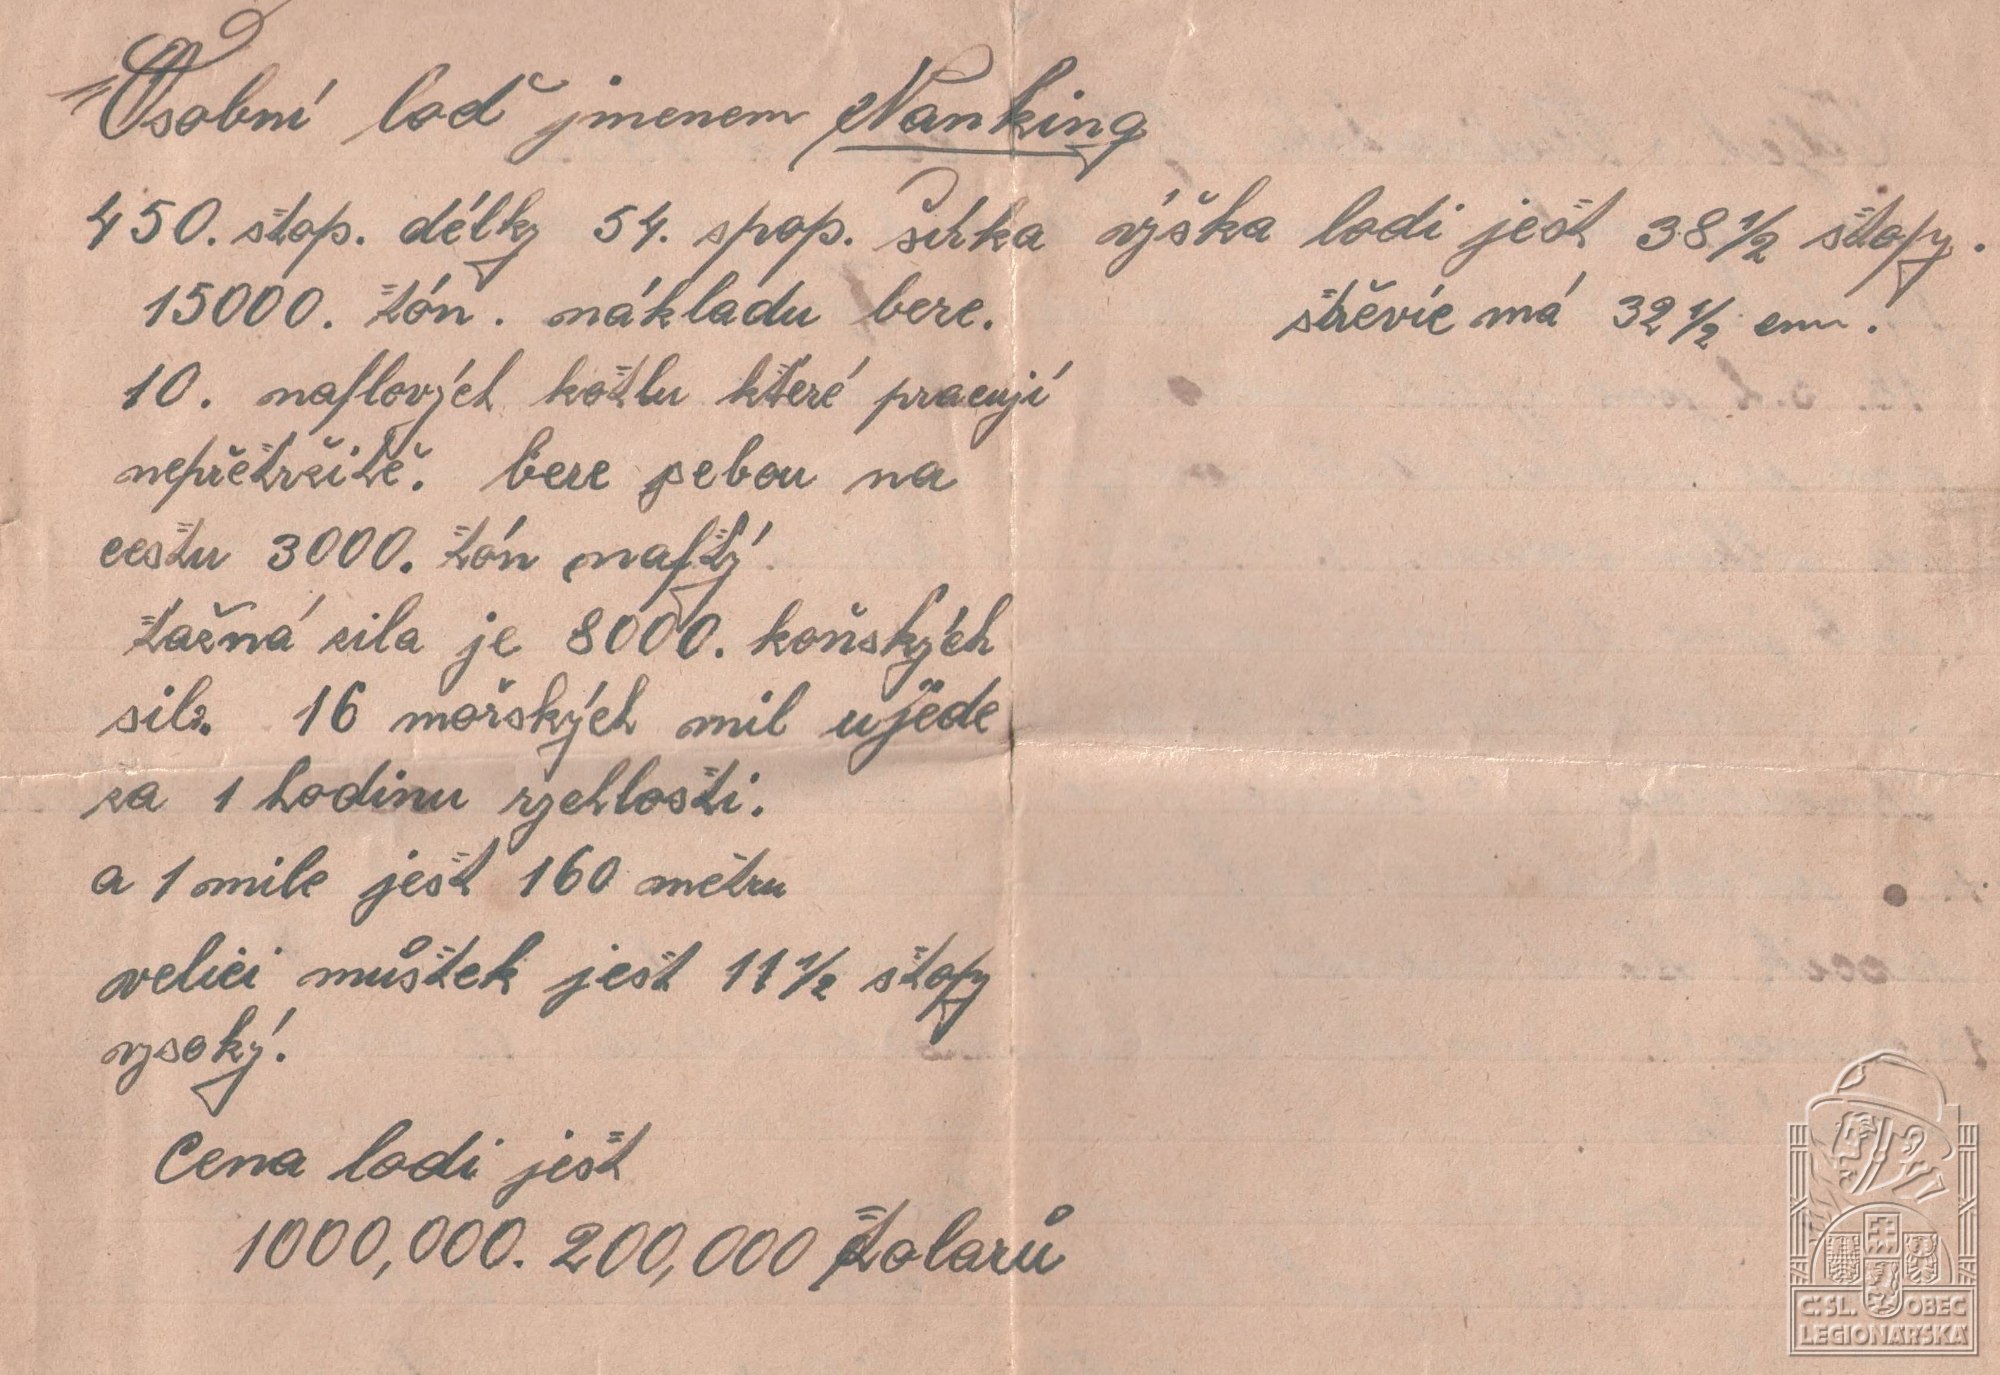 Osobní loď jmenem Nanking
450. stop. délky 54. spop. šířka výška lodi jest 38 1/2 stopy.
15000. tón. nákladu bere. střevíc má 32 1/2 cm.
10. naftových kotlu které pracují
nepřetržitě. bere sebou na
cestu 3000. tón nafty
tažná síla je 8000. koňských
sil. 16 mořských mil ujede
za 1 hodinu rychlosti.
a 1 mile jest 160 metru
velící můstek jest 11 1/2 stopy
vysoký.
Cena lodi jest
1000,000. 200,000 tolarů
Č:SL. OBEC
LEGIONÁŘSKÁ